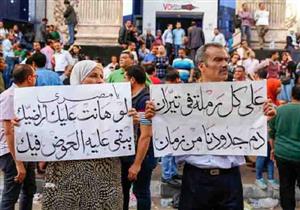 يا مصري
لو هانت عليك ارضك
يبقى عليه العوض فيك
على كل رملة في تيران
دم جدودنا من زمان